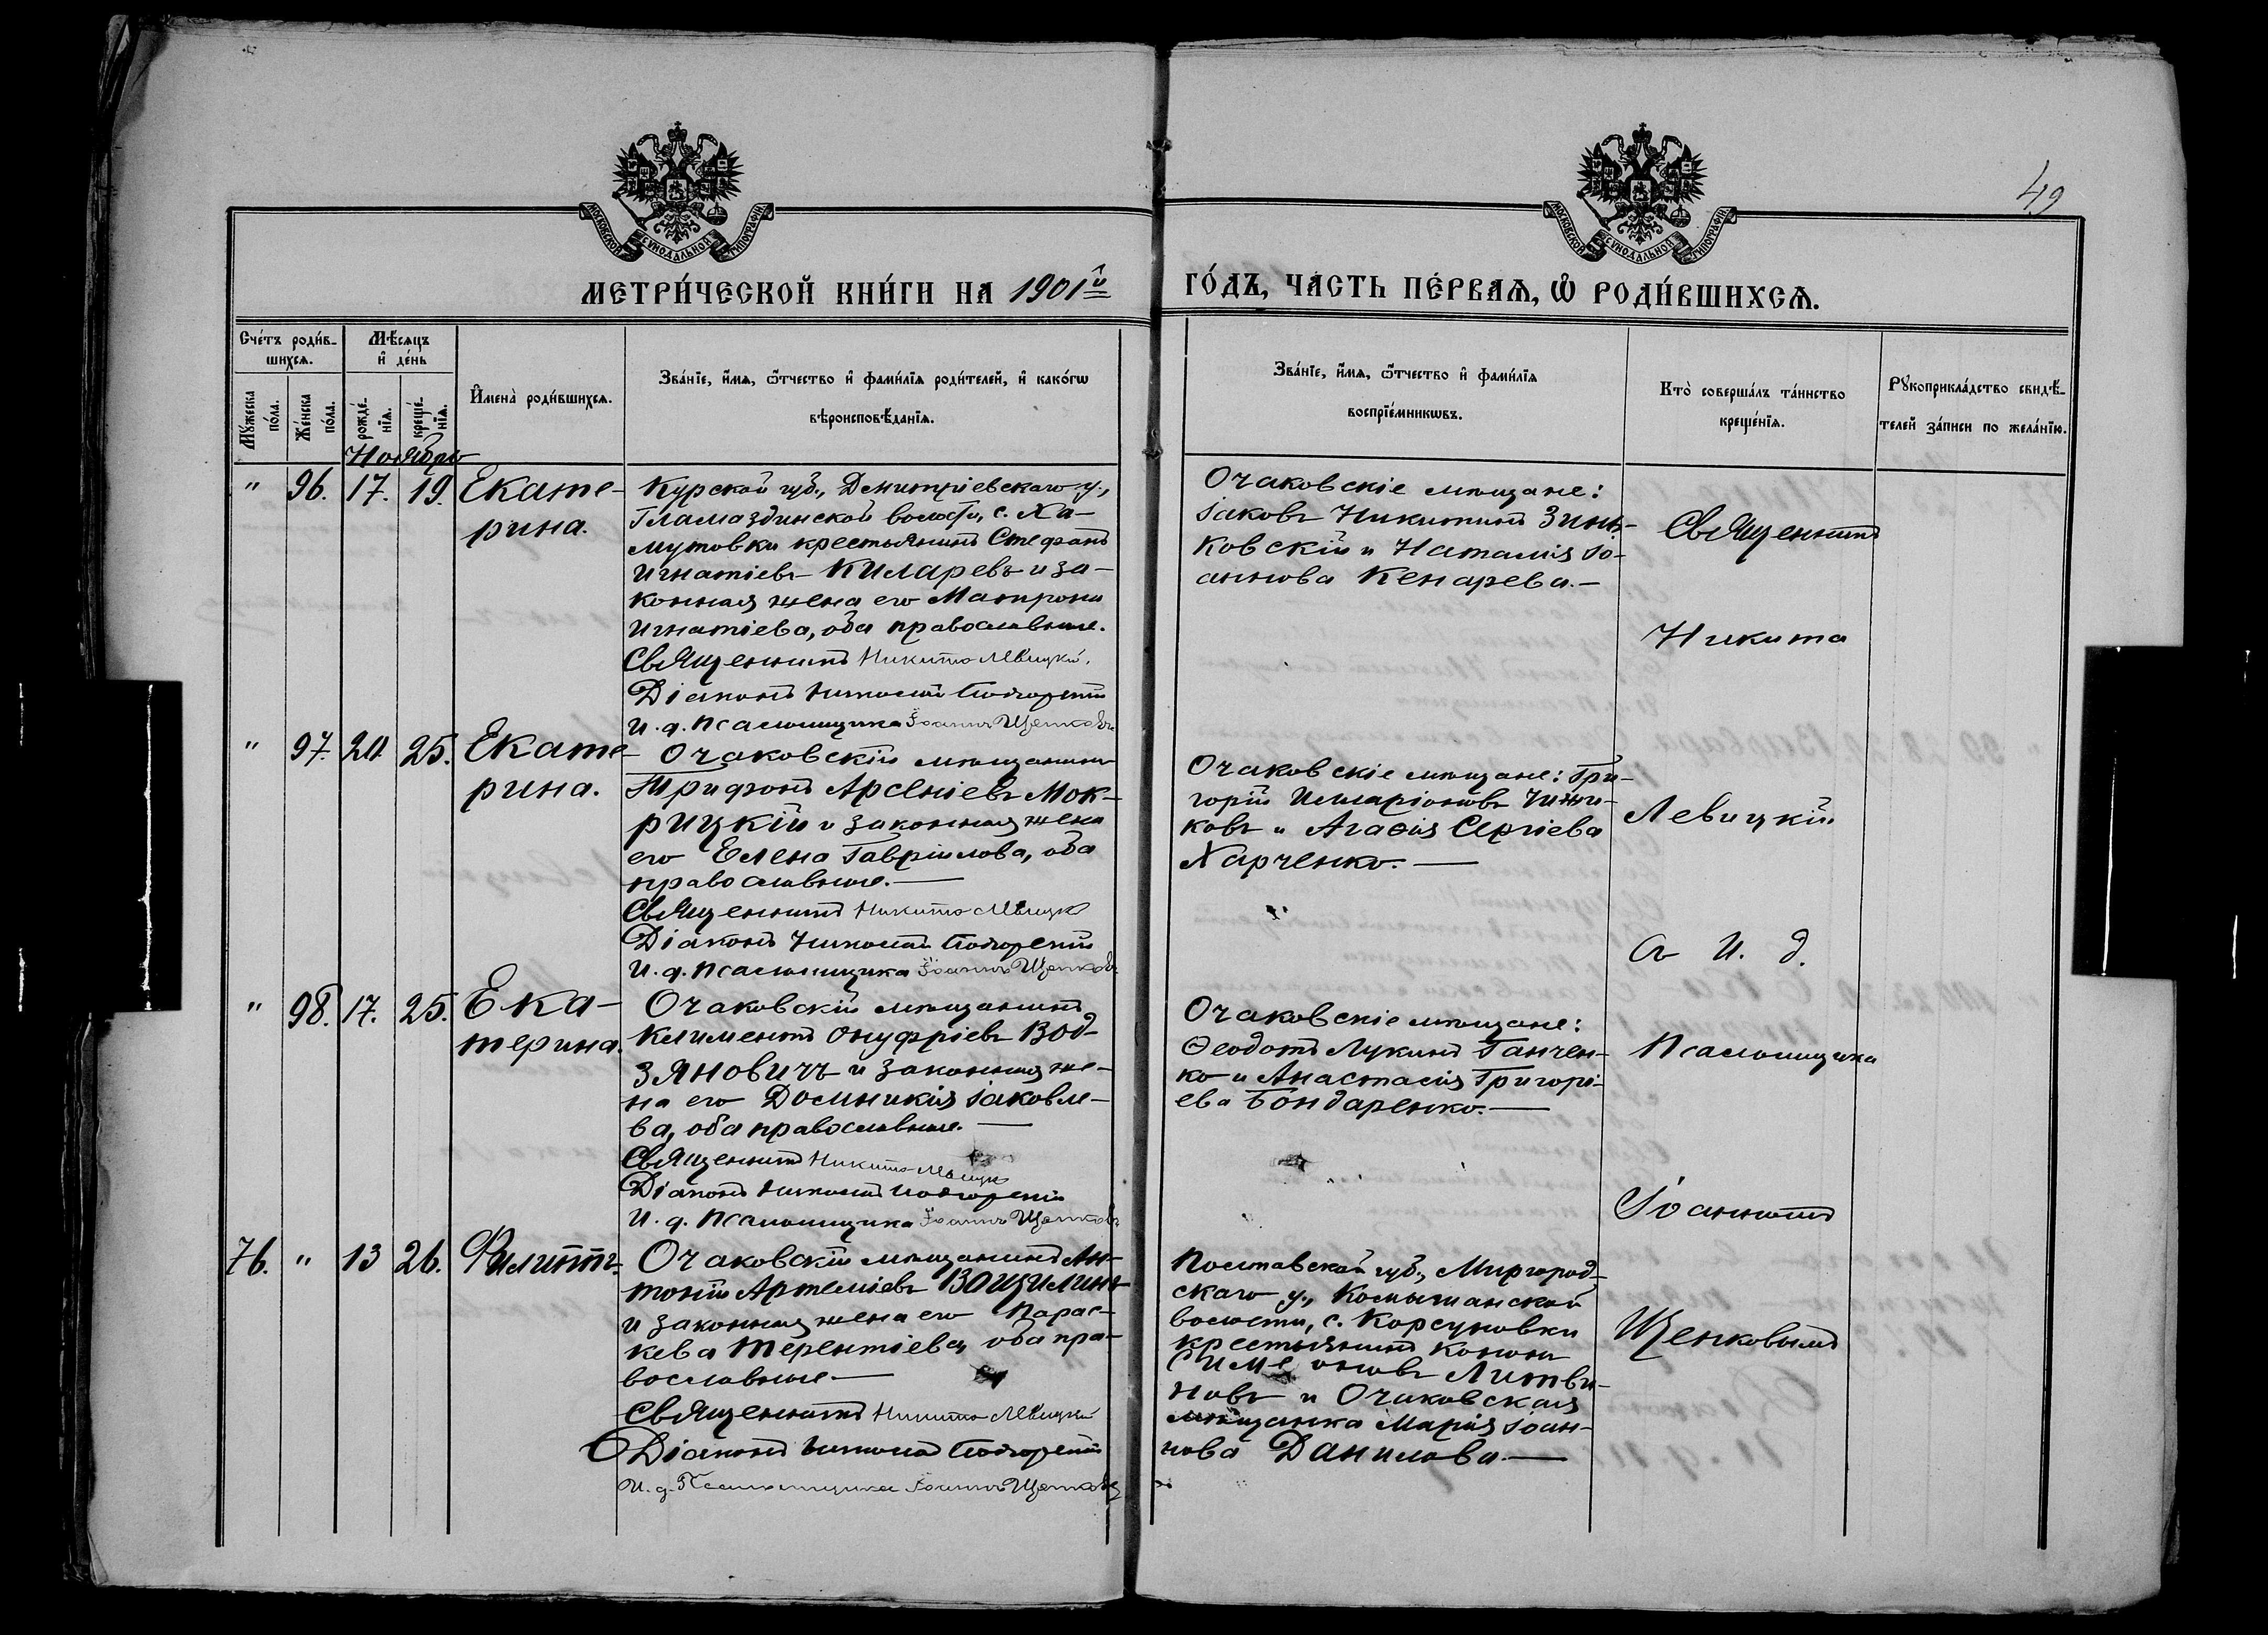 49
МОСКОВСКОЙ СѴНОДАЛЬНОЙ ТИПОГРАФІИ
МОСКОВСКОЙ СѴНОДАЛЬНОЙ ТИПОГРАФІИ
МЕТРИ́ЧЕСКОЙ КНИ́ГИ НА 1901й
ГО́ДЪ, ЧА́СТЬ ПЕ́РВАѦ, Ѽ РОДИ́ВШИХСѦ.
Сче́тъ роди́в-
шихся.
Мѣ́сяцъ
и҆ де́нь
Мꙋ́жеска
по́ла.
Же́нска
по́ла.
рожде́-
нїя.
креще́-
нїя.
И҆мена̀ роди́вшихся.
Зва́нїе, и҆́мя, ѻ҆́тчество и҆ фами́лїя роди́телей, и҆ како́гѡ
вѣроисповѣ́данїя.
Зва́нїе, и҆́мя, ѻ҆́тчество и҆ фами́лїя
воспрїе́мникѡвъ.
Кто̀ соверша́лъ та́инство
креще́нїя.
Рꙋкоприкла́дство свидѣ́-
телей за́писи по жела́нїю.
Ноябрь
" 96. 17. 19. Екате-
рина.
Курской губ., Дмитріевскаго у.,
Гламаздинской волости, с. Ха-
мутовки крестьянинъ Стефанъ
Игнатіевъ Киларевъ и за-
конная жена его Матрона
Игнатіева, оба православные.
Священникъ Никита Левицкій.
Діаконъ Николай
И. д. Псаломщика Іоаннъ Щепковъ
Очаковскіе мѣщане:
Іаковъ Никитинъ Зинь-
ковскій и Наталія Іо-
аннова Кенарева.—
Священникъ
Никита
" 97. 20. 25. Екате-
рина.
Очаковскій мѣщанинъ
Трифонъ Арсеніевъ Мок-
рицкій и законная жена
его Елена Гавріилова, оба
православные.—
Священникъ Никита Левицкій
Діаконъ Николай
И. д. Псаломщика Іоаннъ Щепковъ
Очаковскіе мѣщане: Гри-
горій Илларіоновъ Чижи-
ковъ и Агаѳія Сергіева
Харченко.—
Левицкій
съ И. д.
" 98. 17. 25. Ека-
терина.
Очаковскій мѣщанинъ
Климентъ Онуфріевъ Вод-
зяновичъ и законная же-
на его Домникія Іаковле-
ва, оба православные.—
Священникъ Никита Левицкій
Діаконъ Николай
И. д. Псаломщика Іоаннъ Щепковъ
Очаковскіе мѣщане:
Ѳеодотъ Лукинъ Ганчен-
ко и Анастасія Григорі-
ева Бондаренко.—
Псаломщика
Іоанномъ
76. " 13 26. Филиппъ.
Очаковскій мѣщанинъ Ан-
тоній Артеміевъ Вощилинъ
и законная жена его Парас-
кева Терентіева, оба пра-
вославные.—
Священникъ Никита Левицкій
Діаконъ Николай
И. д. Псаломщика Іоаннъ Щепковъ
Полтавской губ., Миргород-
скаго у., Комышанской
волости, с. Корсуновки
крестьянинъ Кононъ
Симеоновъ Литви-
новъ и Очаковская
мѣщанка Марія Іоан-
нова Данилова.—
Щепковымъ